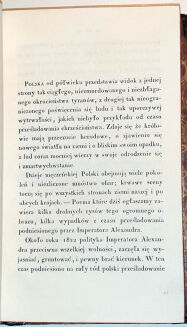 Polska od półwieku przedstawia widok z jednej
strony tak ciągłego, niezmordowanego i niezbłaga-
nego okrucieństwa tyranów, z drugiej tak nieogra-
niczonego poświęcenia się ludu i tak uporczywej
wytrwałości, jakich niebyło przykładu od czasu
prześladowania chrześciaństwa. Zdaje się że kró-
lowie mają przeczucie herodowe, o zjawieniu się
nowego światła na ziemi i o bliskim swoim upadku,
a lud coraz mocniej wierzy w swoje odrodzenie się
i zmartwychwstanie.
Dzieje męczeńskiej Polski obejmują wiele poko-
leń i niezliczone mnóstwo ofiar; krwawe sceny
toczą się po wszystkich stronach ziemi naszej i po
obcych krajach. — Poema które dziś ogłaszamy za-
wiera kilka drobnych rysów tego ogromnego o-
brazu, kilka wypadków z czasu prześladowania
podniesionego przez Imperatora Alexandra.
Około roku 1822 polityka Imperatora Alexan-
dra przeciwna wszelkiej wolności, zaczęła się wy-
jaśniać, gruntować, i pewny brać kierunek. W ten
czas podniesiono na cały ród polski prześladowanie